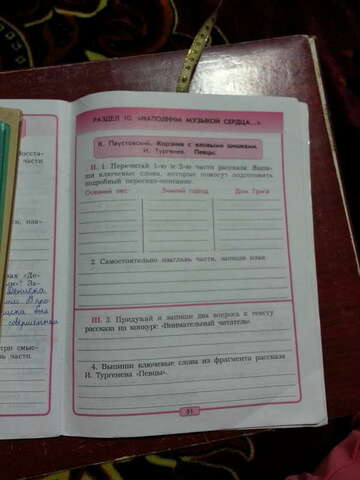 РАЗДЕЛ 10. «НАПОЛНИМ МУЗЫКОЙ СЕРДЦА...»
К. Паустовский. Корзина с еловыми шишками.
И. Тургенев. Певцы.
II. 1. Перечитай 1-ю и 2-ю части рассказа. Выпи-
ши ключевые слова, которые помогут подготовить
подробный пересказ-описание.
Осенний лес Зимний город Дом Грига
2. Самостоятельно озаглавь части, запиши план
III. 3. Придумай и запиши два вопроса к тексту
рассказа на конкурс «Внимательный читатель».
4. Выпиши ключевые слова из фрагмента рассказа
И. Тургенева «Певцы».
51
Восста-
части
«Де-
За-
Дениска
совершенная
три смыс-
части.